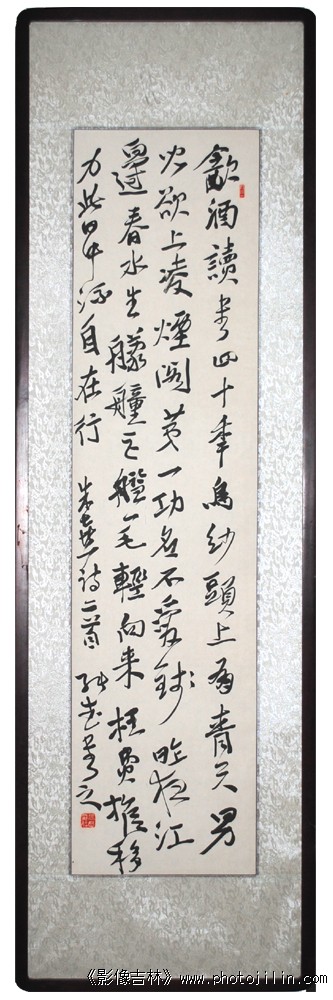 飲酒讀書四十年烏紗頭上有青天男
兒欲上凌煙閣第一功名不愛錢 昨夜江
邊春水生艨艟巨艦一毛輕向来枉費推移
力此日中流自在行 朱熹詩二首 書之
《影像吉林》www.photojilin.com